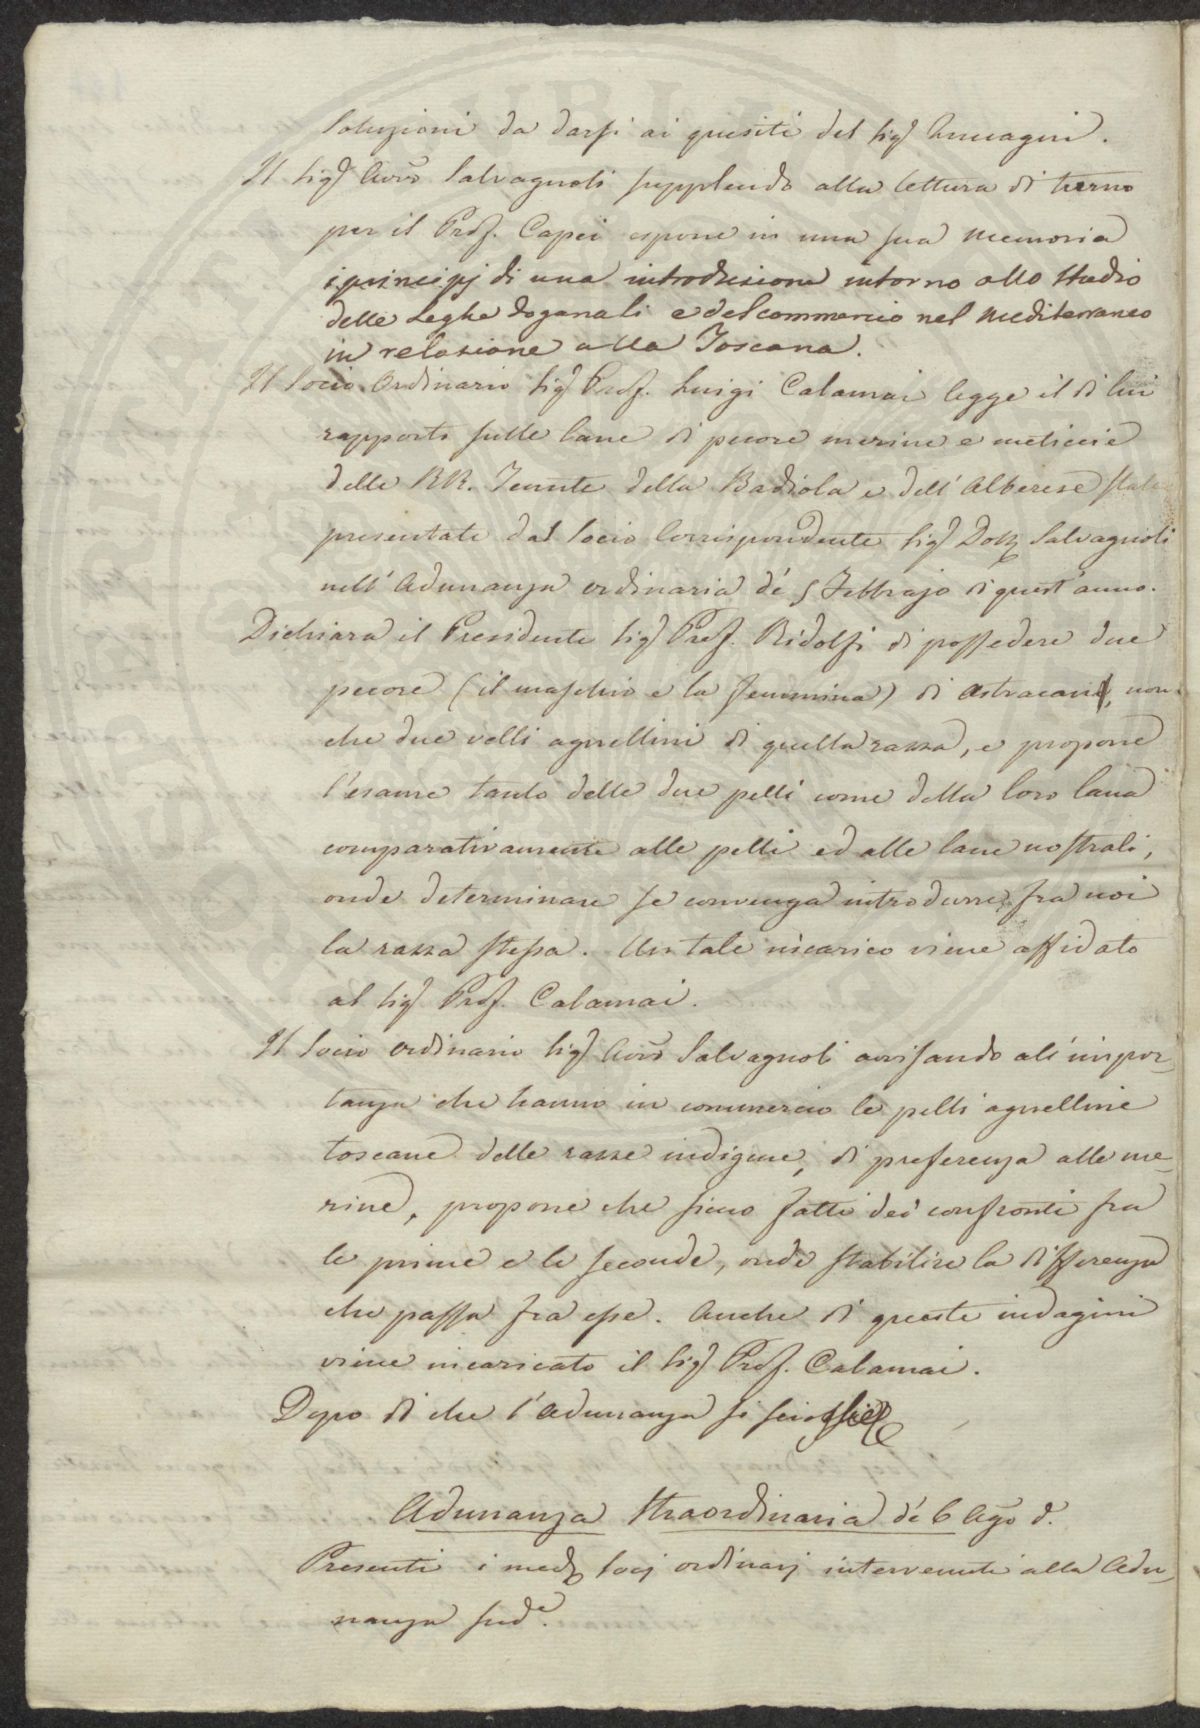 soluzioni da darsi ai quesiti del Sigr
Il Sigr Avvo Salvagnoli supplendo alla lettura di turno
per il Prof. Capei espone in una sua memoria
i principj di una introduzione intorno allo studio
delle Leghe doganali e del commercio nel Mediterraneo
in relazione alla Toscana.
Il Socio Ordinario Sigr Prof. Luigi Calamai legge il di lui
rapporto sulle lane di pecore merine e meticcie
delle RR. Tenute della Badiola e dell'Alberese state
presentate dal Socio Corrispondente Sigr Dottr Salvagnoli
nell'Adunanza ordinaria de' 5 Febbrajo di quest'anno.
Dichiara il Presidente Sigr Prof. Ridolfi di possedere due
pecore (il maschio e la femmina) di Astracan, non
che due velli agnellini di quella razza, e propone
l'esame tanto delle due pelli come della loro lana
comparativamente alle pelli ed alle lane nostrali,
onde determinare se convenga introdurre fra noi
la razza stessa. Un tale incarico viene affidato
al Sigr Prof. Calamai.
Il Socio ordinario Sigr Avvo Salvagnoli avvisando all'impor-
tanza che hanno in commercio le pelli agnelline
toscane delle razze indigene, di preferenza alle me-
rine, propone che sieno fatti dei confronti fra
le prime e le seconde, onde stabilire la differenza
che passa fra esse. Anche di queste indagini
viene incaricato il Sigr Prof. Calamai.
Dopo di che l'Adunanza si sciolse
Adunanza Straordinaria de' 6 Agto do
Presenti i medi Socj ordinarj intervenuti alla Adu-
nanza sude.